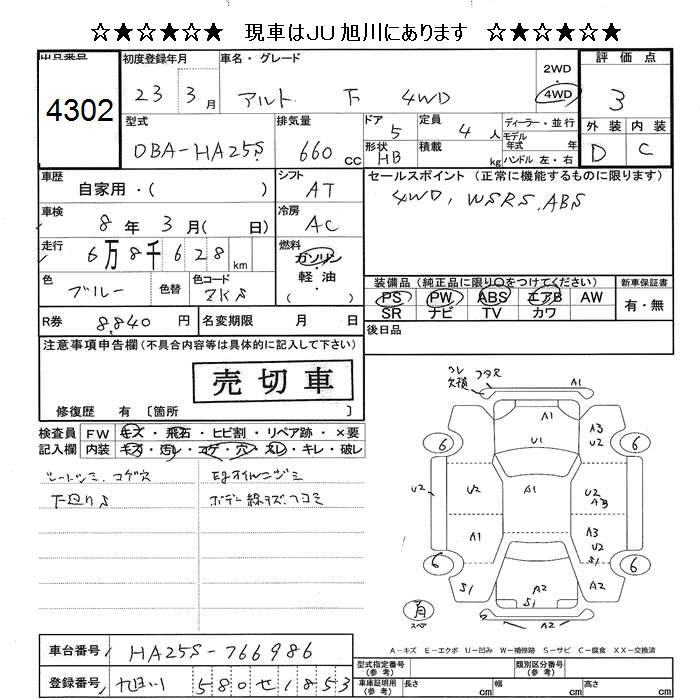 ☆★☆★☆★ 現車はJU旭川にあります ☆★☆★☆★
出品番号
4302
初度登録年月
23 3月
車名・グレード
アルト F 4WD
2WD
・
4WD
評価点
3
外装 内装
D C
型式
DBA-HA25S
排気量
660 cc
ドア
5
形状
HB
定員
4 人
積載
kg
ディーラー・並行
モデル年式 年式
ハンドル 左・右
車歴
自家用・( )
シフト
AT
セールスポイント (正常に機能するものに限ります)
4WD, WSRS, ABS
車検
8年 3月( 日)
冷房
AC
走行
6万8千628 km
燃料
ガソリン
・
軽・油
( )
色
ブルー
色替
色コード
ZKS
装備品 (純正品に限り○をつけてください)
PS PW ABS エアB AW
SR ナビ TV カワ
新車保証書
有・無
R券
8,840 円
名変期限 月 日
後日品
注意事項申告欄 (不具合内容等は具体的に記入して下さい)
売切車
修復歴 有 〔箇所 〕
検査員記入欄
FW キズ・飛石・ヒビ割・リペア跡・×要
内装 キズ・汚レ・コゲ・穴・スレ・キレ・破レ
シートシミ、コゲ穴
下廻りS
Egオイルニジミ
ボデー線キズ、凹コミ
欠損
A1
A1
U1
A3
U2
6
6
U2
U2
A1
U2
A3
A1
A3
U2
S1
6
6
S1
A2
A2
S1
A2
スペ
A-キズ E-エクボ U-凹み W-補修跡 S-サビ C-腐食 XX-交換済
車台番号
HA25S-766986
登録番号
旭川 580 せ 1853
型式指定番号
(参考)
類別区分番号
(参考)
車庫証明用
(参考)
長さ cm
幅 cm
高さ cm